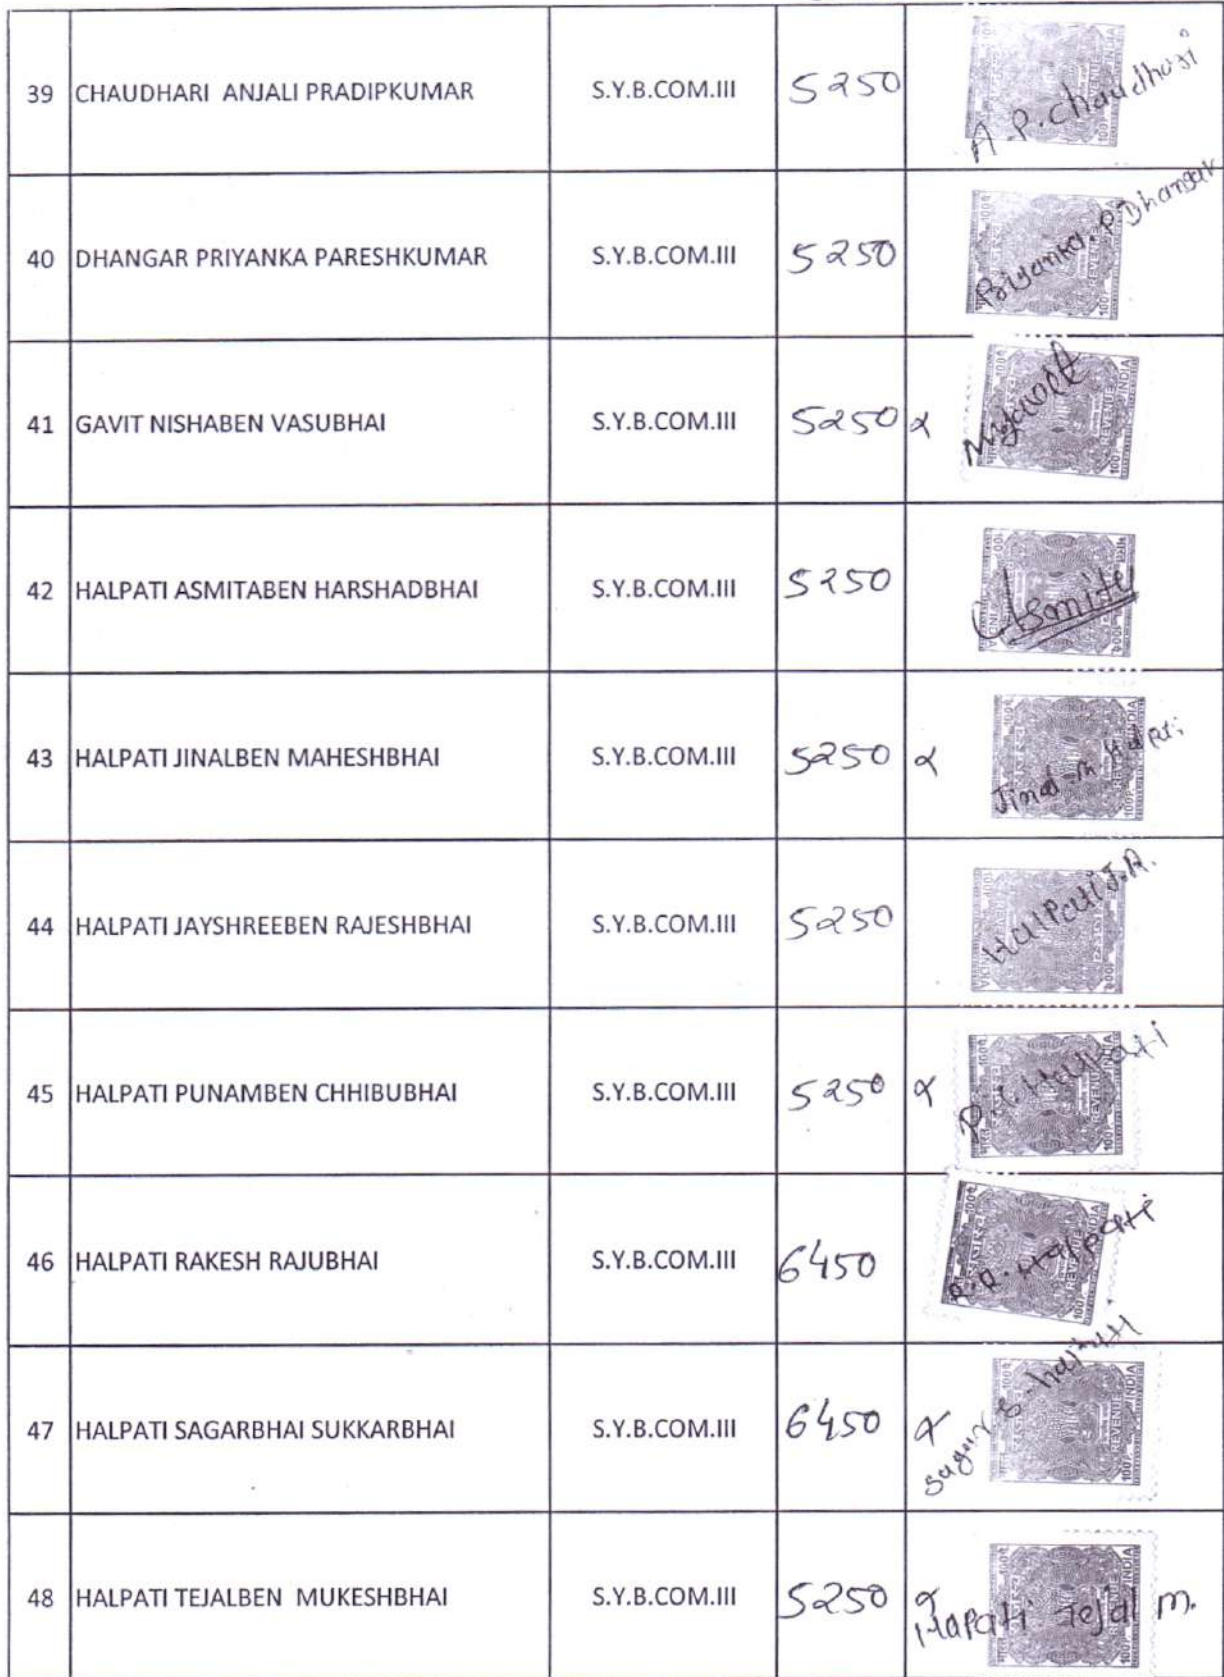 39 CHAUDHARI ANJALI PRADIPKUMAR S.Y.B.COM.III 5250 A.P.Chaudhari
40 DHANGAR PRIYANKA PARESHKUMAR S.Y.B.COM.III 5250 Priyanka.P.Dhangar
41 GAVIT NISHABEN VASUBHAI S.Y.B.COM.III 5250
42 HALPATI ASMITABEN HARSHADBHAI S.Y.B.COM.III 5250 Asmita
43 HALPATI JINALBEN MAHESHBHAI S.Y.B.COM.III 5250 Jinal m
44 HALPATI JAYSHREEBEN RAJESHBHAI S.Y.B.COM.III 5250 Halpati J.R.
45 HALPATI PUNAMBEN CHHIBUBHAI S.Y.B.COM.III 5250 P.C.Halpati
46 HALPATI RAKESH RAJUBHAI S.Y.B.COM.III 6450 R.R.Halpati
47 HALPATI SAGARBHAI SUKKARBHAI S.Y.B.COM.III 6450 Sagar S. halpati
48 HALPATI TEJALBEN MUKESHBHAI S.Y.B.COM.III 5250 Halpati Tejal m.